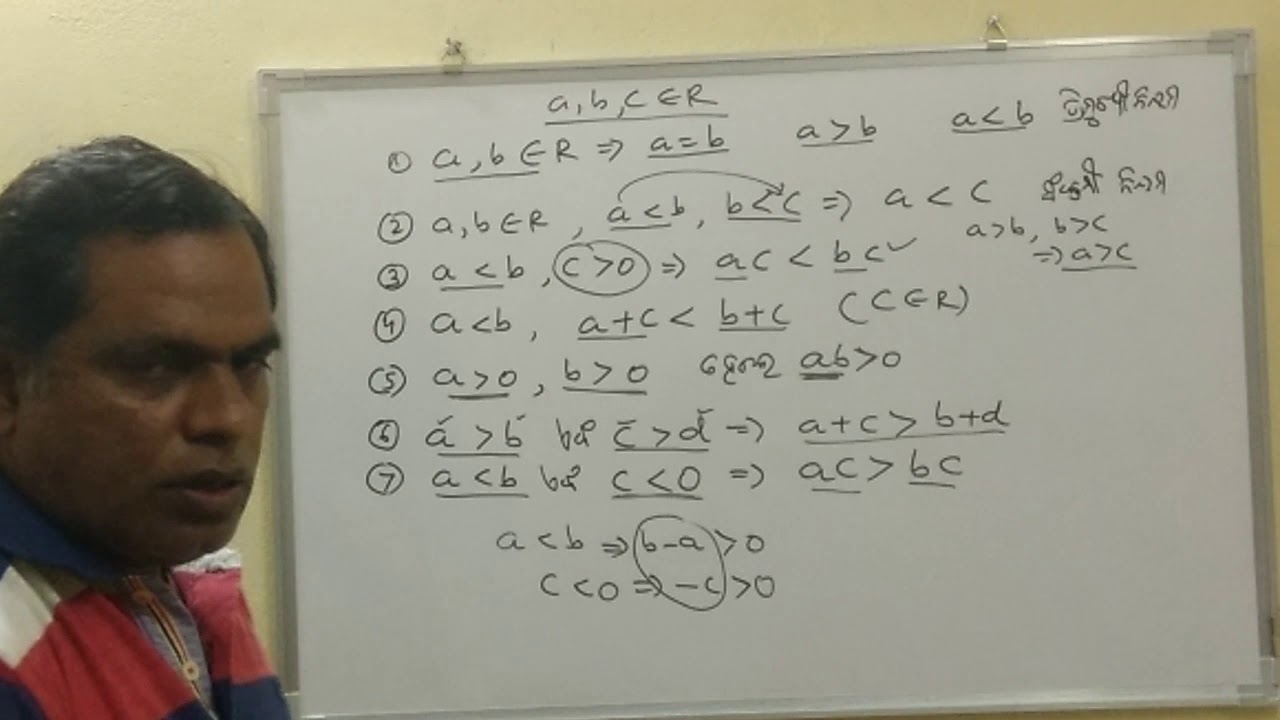 a, b, c ∈ R
① a, b ∈ R ⇒ a = b a > b a < b ତ୍ରିମୁଖୀ ନିୟମ
② a, b ∈ R , a < b , b < c ⇒ a < c ନିୟମ
a > b , b > c
⇒ a > c
③ a < b , c > 0 ⇒ ac < bc ✓
④ a < b , a + c < b + c (c ∈ R)
⑤ a > 0 , b > 0 ହେଲେ ab > 0
⑥ a > b ଏବଂ c > d ⇒ a + c > b + d
⑦ a < b ଏବଂ c < 0 ⇒ ac > bc
a < b ⇒ b - a > 0
c < 0 ⇒ - c > 0